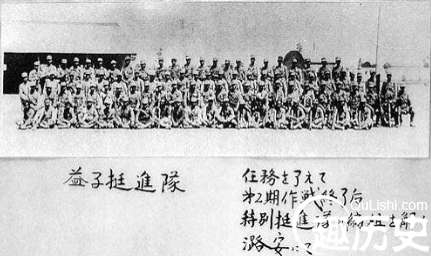 益子挺進隊
任務を了えて
第2期作戦終了后
特別挺進隊の編組を解
潞安にて
QuLishi.com
趣历史